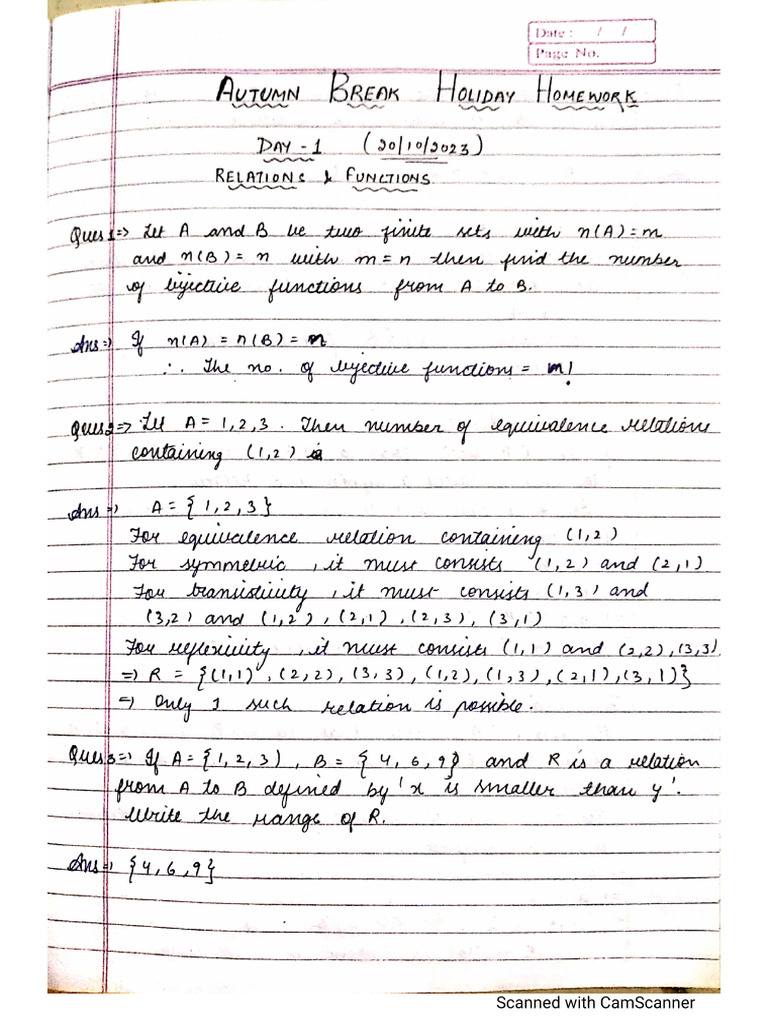 Date : / /
Page No.
AUTUMN BREAK HOLIDAY HOMEWORK
DAY - 1 (20/10/2023)
RELATIONS & FUNCTIONS
Ques 1=> Let A and B be two finite sets with n(A)=m
and n(B)= n with m=n then find the number
of bijective functions from A to B.
Ans=> If n(A) = n(B) = m
∴ The no. of bijective functions = m!
Ques 2=> Let A = 1,2,3. Then number of equivalence relations
containing (1,2) is
Ans => A = {1,2,3}
For equivalence relation containing (1,2)
For symmetric, it must consists (1,2) and (2,1)
For transistivity, it must consists (1,3) and
(3,2) and (1,2), (2,1), (2,3), (3,1)
For reflexivity, it must consists (1,1) and (2,2),(3,3)
=> R = {(1,1), (2,2), (3,3), (1,2), (1,3), (2,1), (3,1)}
=> Only 1 such relation is possible.
Ques 3=> If A={1,2,3), B = {4, 6, 9} and R is a relation
from A to B defined by 'x is smaller than y'.
Write the range of R.
Ans=> {4,6,9}
Scanned with CamScanner